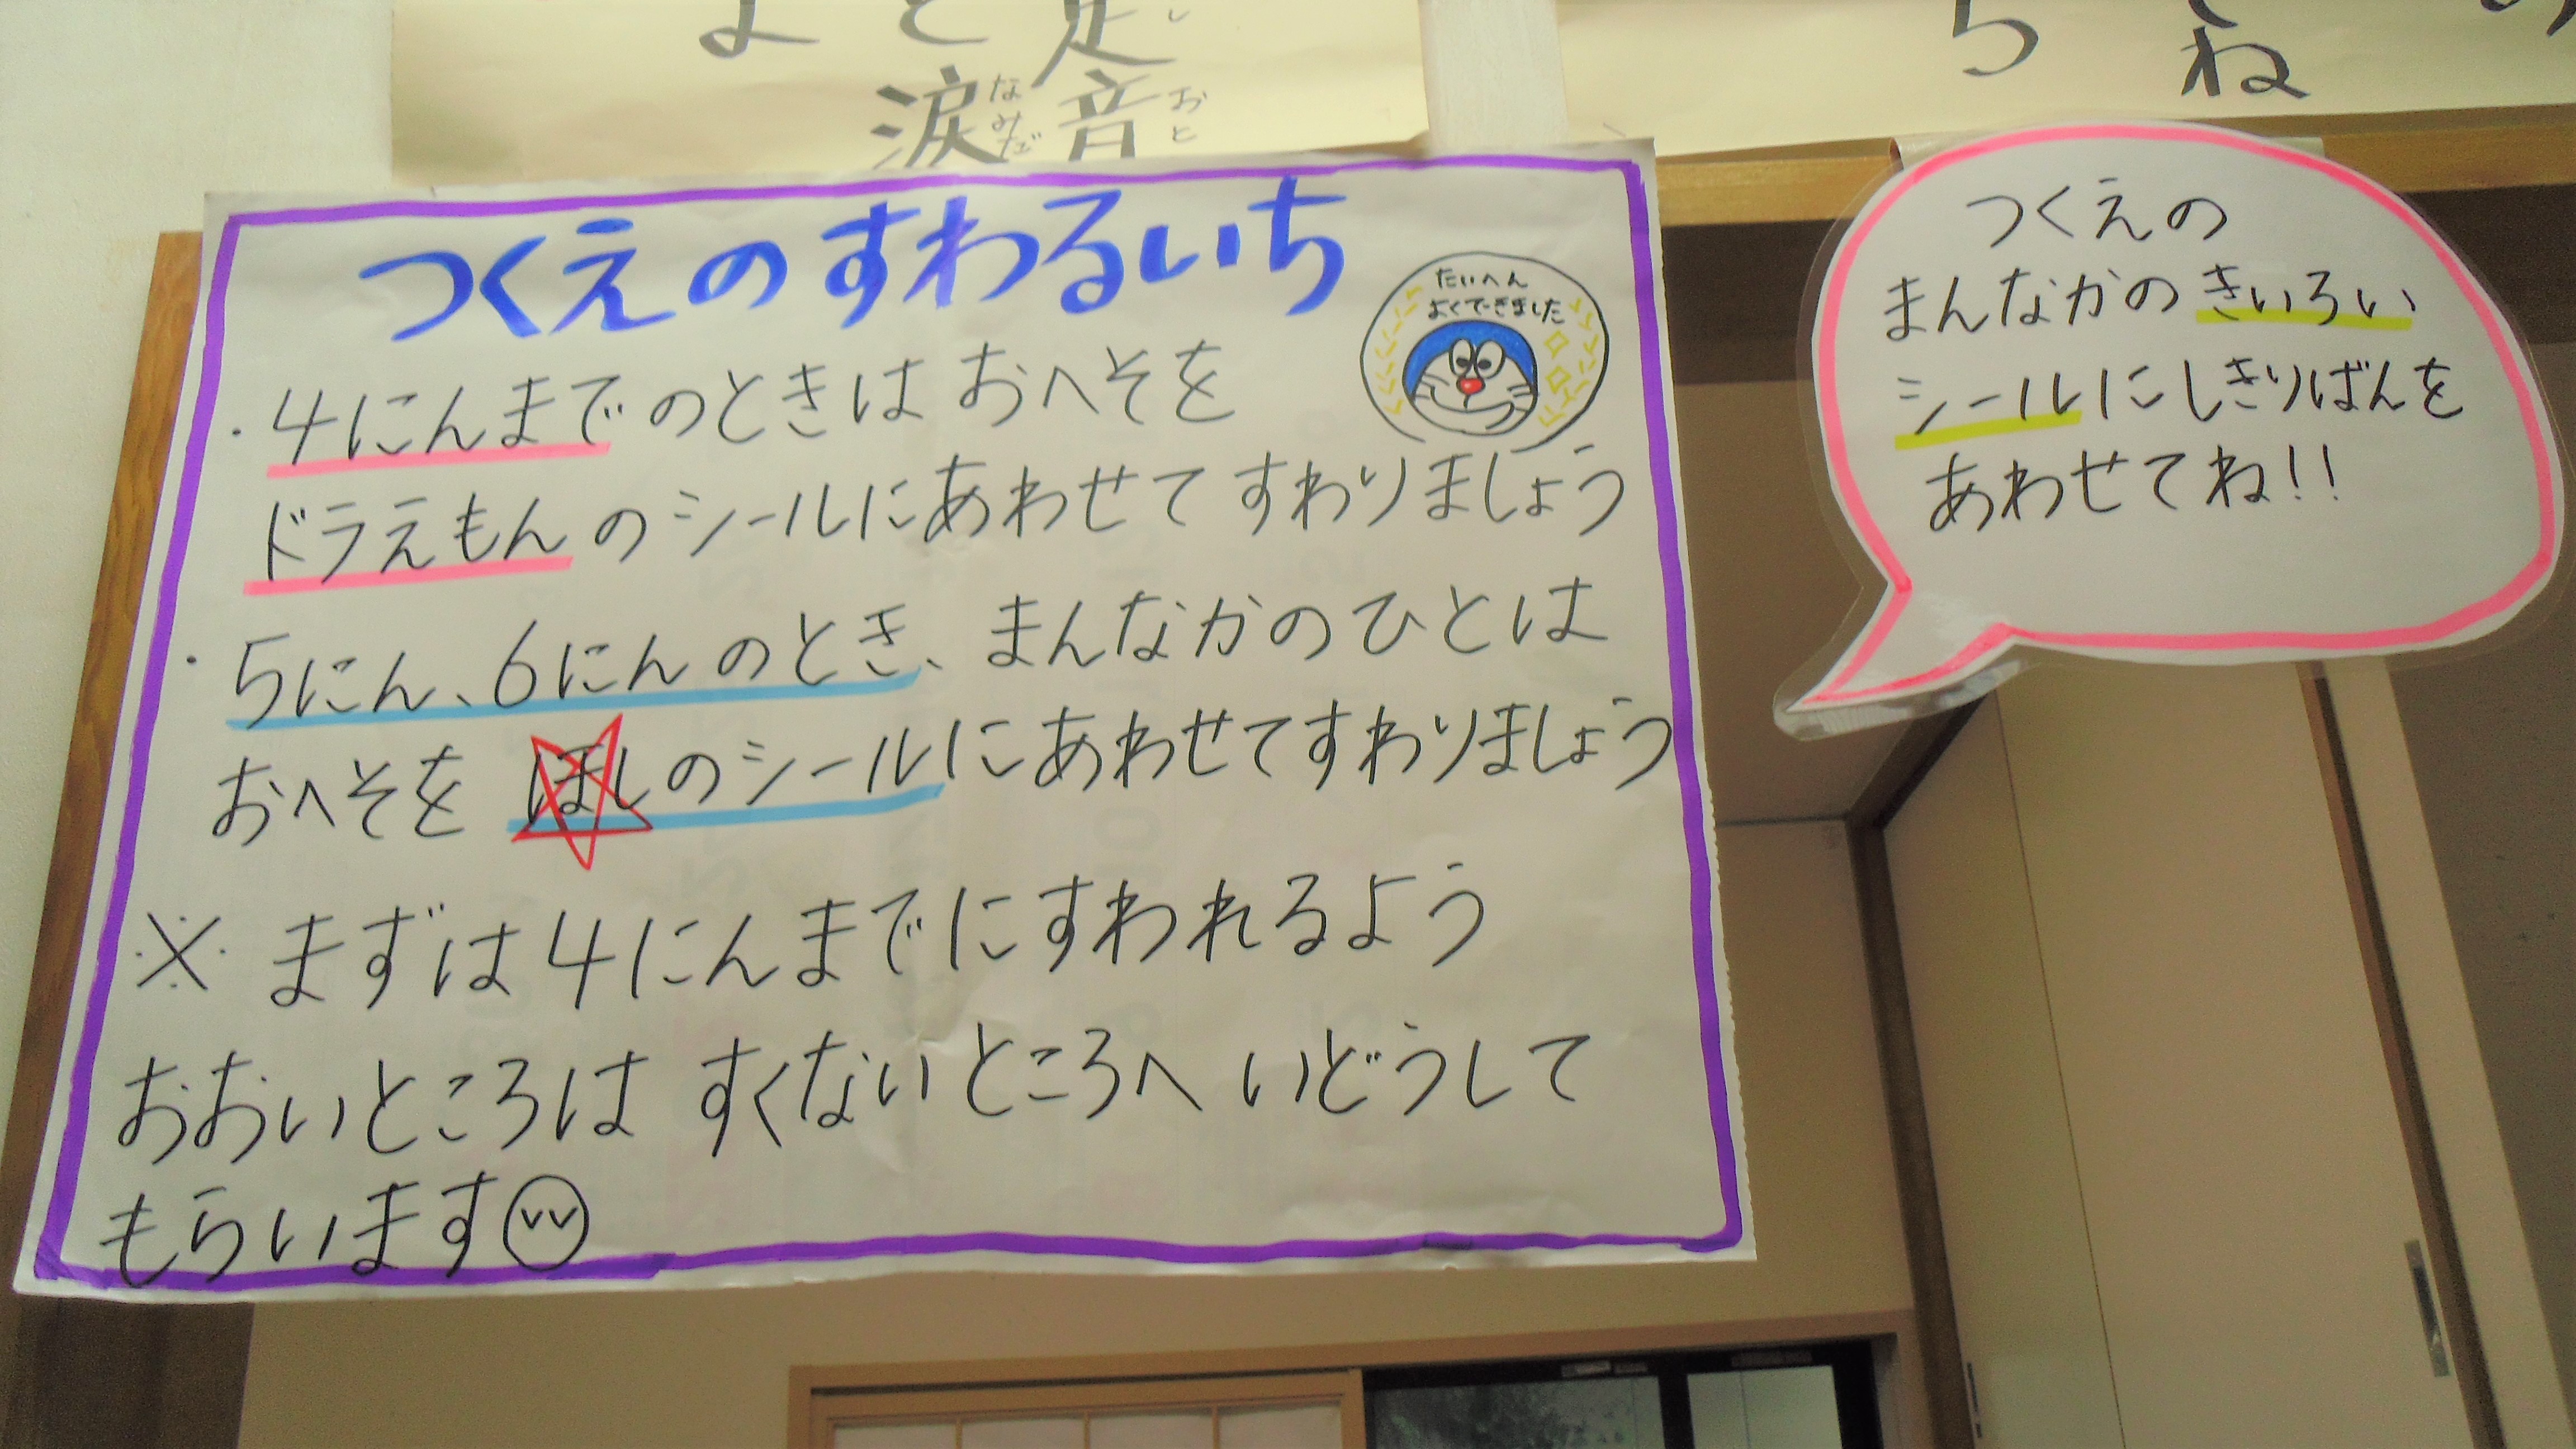 足音
おと
涙
なみだ
ね
つくえのすわるいち
たいへん
よくできました
・4にんまでのときは おへそを
ドラえもんのシールにあわせて すわりましょう
・5にん、6にんのとき、まんなかのひとは
おへそを ほしのシールにあわせてすわりましょう
※ まずは4にんまでにすわれるよう
おおいところは すくないところへ いどうして
もらいます
つくえの
まんなかの きいろい
シールにしきりばんを
あわせてね!!